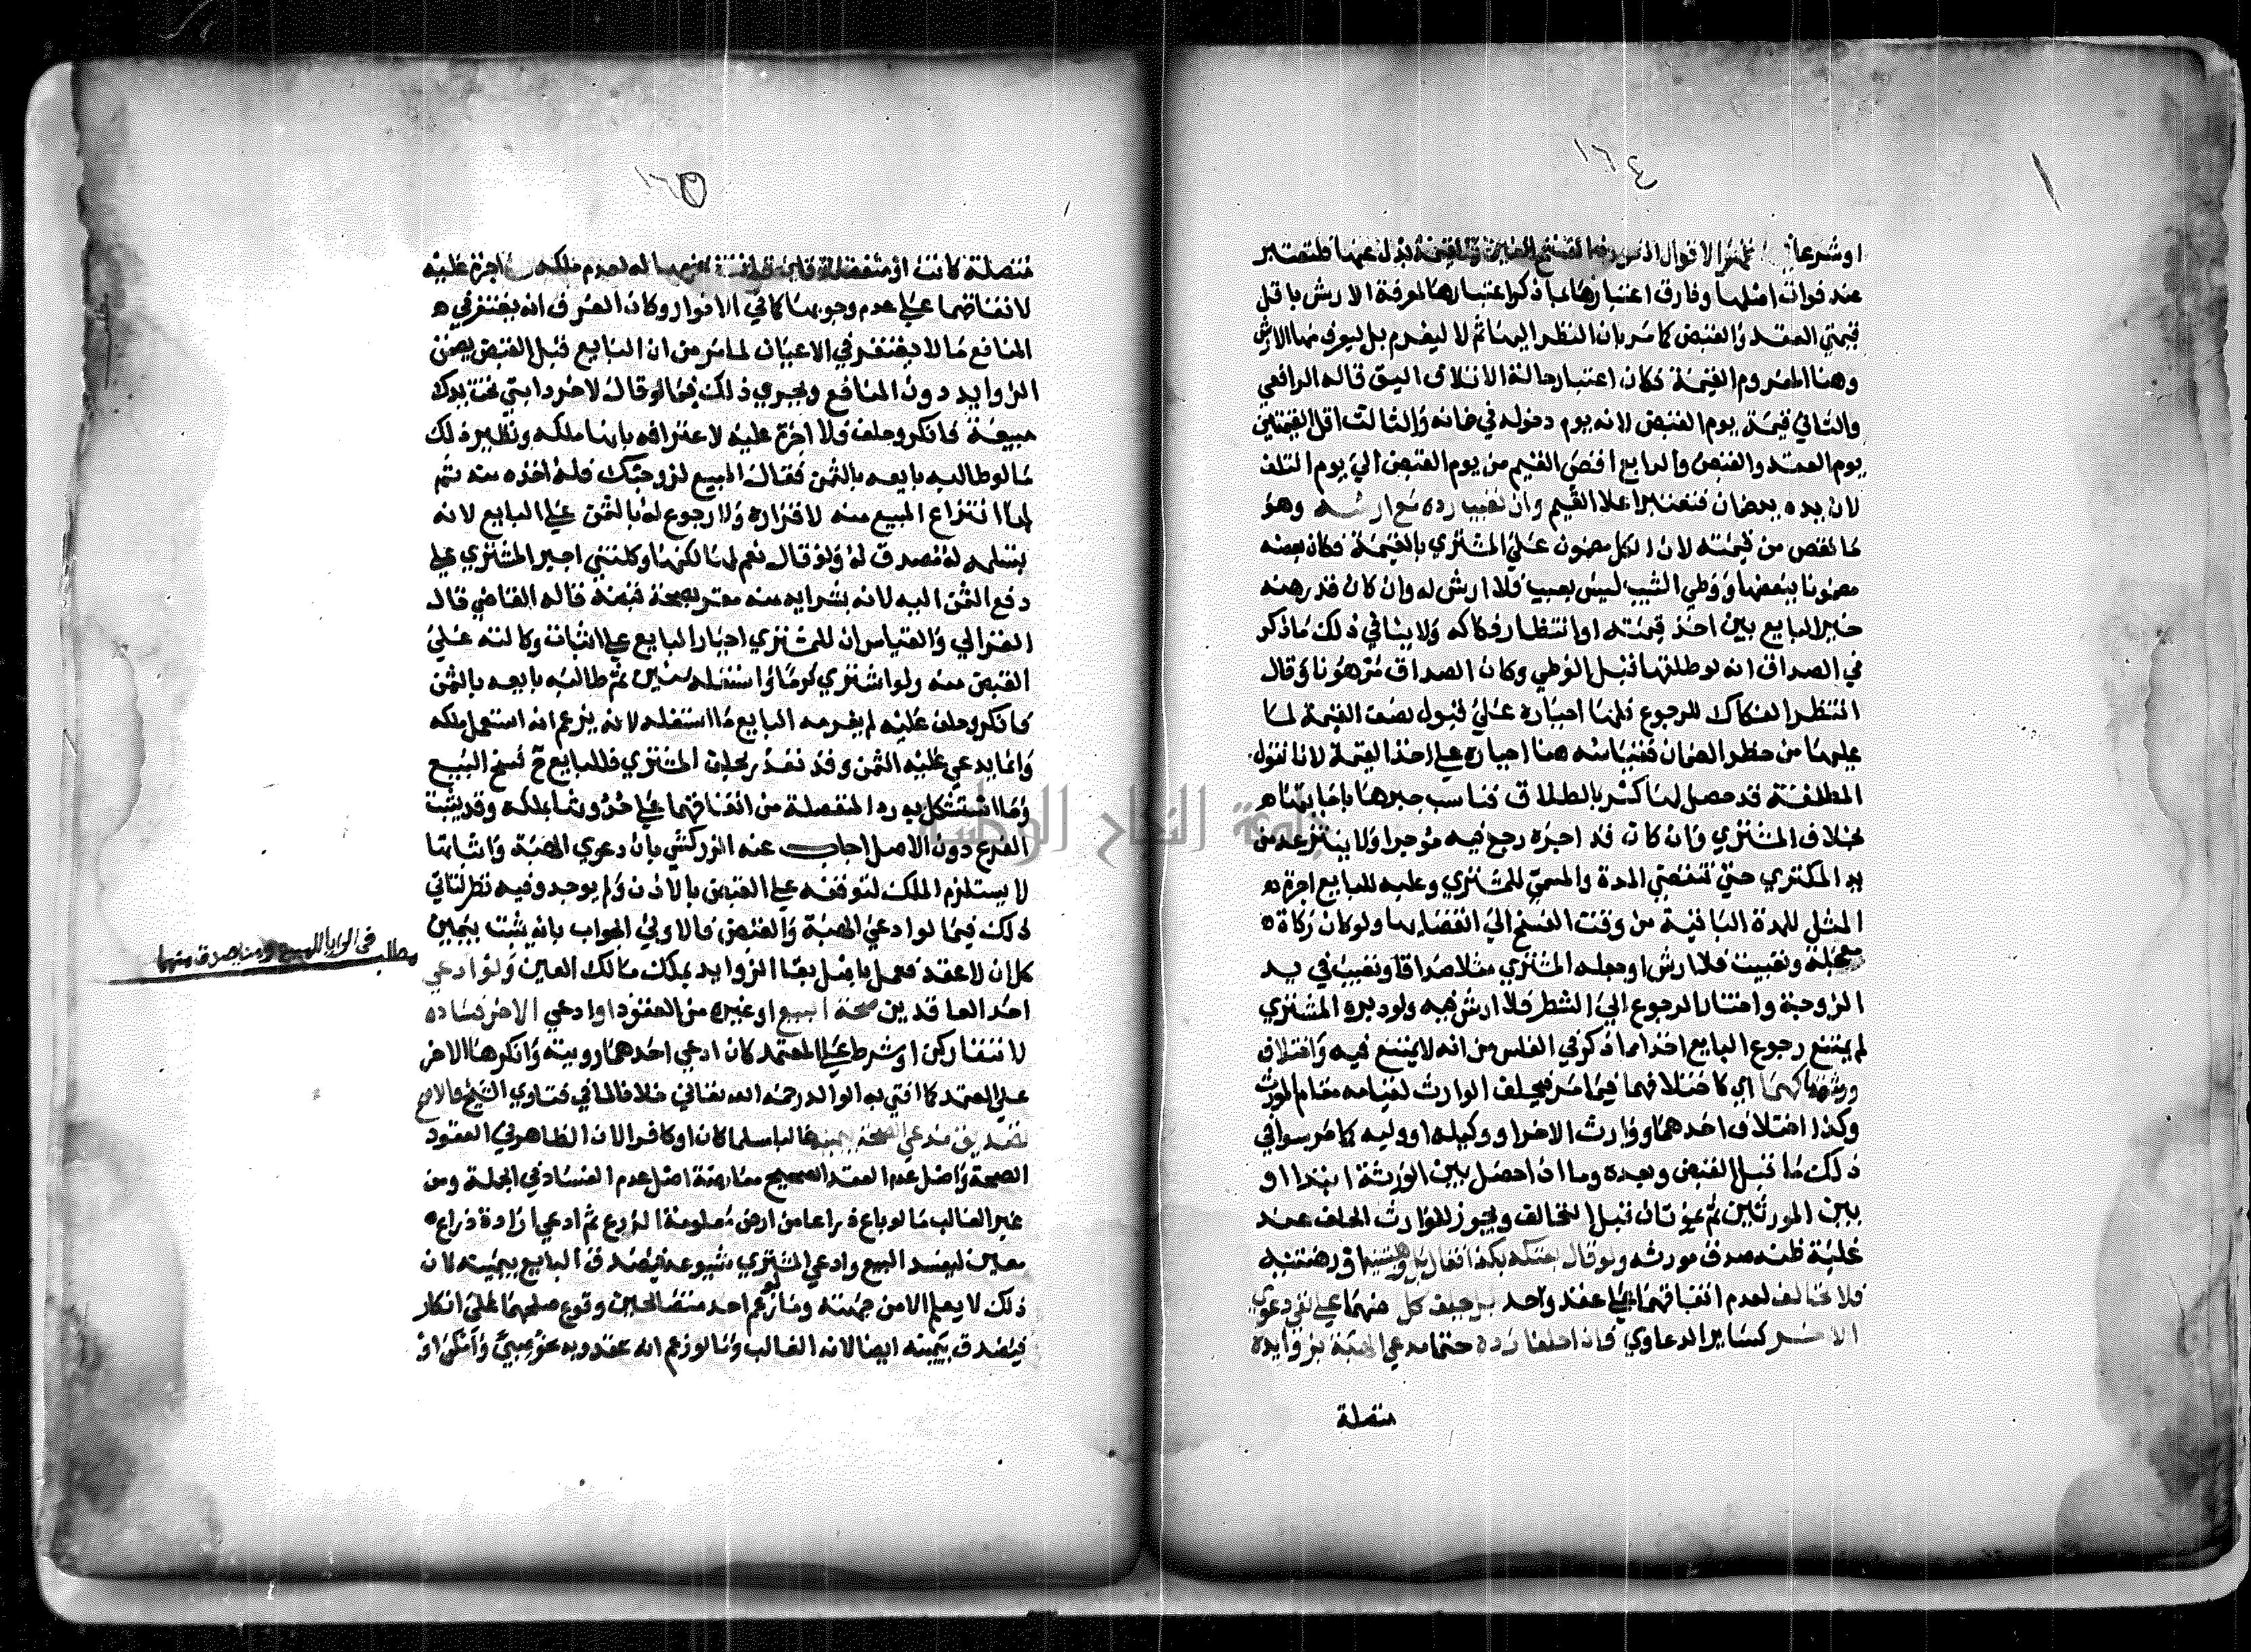 او شرعا الاقوال اذ مورد الفسخ العين والقيمة بدل عنها فلتعتبر
عند فوات اصلها وفارق اعتبارها بما ذكر اعتبارها لمعرفة الارش باقل
قيمتي العقد والقبض كما مر بان النظر اليها ثم لا ليغرم بل ليعرف منها الارش
وهنا المغروم القيمة فكان اعتبار حالة الاتلاف اليق قاله الرافعي
والثاني قيمة يوم القبض لانه يوم دخوله في ضمانه والثالث اقل القيمتين
يوم العقد والقبض والرابع اقصى القيم من يوم القبض الي يوم التلف
لان يده يد ضمان فتعتبر اعلا القيم وان تعيب رده مع ارشه وهو
ما نقص من قيمته لان الكل مضمون علي المشتري بالقيمة فكان بعضه
مضمونا ببعضها ووطي الثيب ليس بعيب فلا ارش له وان كان قد رهنه
خير البايع بين اخذ قيمته او انتظار فكاكه ولا ينافي ذلك ما ذكر
في الصداق انه لو طلقها قبل الوطي وكان الصداق مرهونا وقال
انتظر الفكاك للرجوع فلها اجباره علي قبول نصف القيمة لما
عليها من خطر الضمان فقياسه هنا اجباره علي اخذ القيمة لانا نقول
المطلقة قد حصل لها كسر بالطلاق فناسب جبرها باجابتها
بخلاف المشتري وان كان قد اجره رجع فيه موجرا ولا ينتزعه من
يد المكتري حتي تنقضي المدة والمسمي للمشتري وعليه للبايع اجرة
المثل للمدة الباقية من وقت الفسخ الي انقضايها ولو كان زكاة
معجلة وتعيبت فلا ارش او جعله المشتري مثلا صداقا وتعيب في يد
الزوجة واختار الرجوع الي الشطر فلا ارش فيه ولو دبره المشتري
لم يمتنع رجوع البايع اخذا مما ذكر في الفلس من انه لا يمتنع فيه واختلاف
ورثتهما كهما اي كاختلافهما فيما مر فيحلف الوارث لقيامه مقام المورث
وكذا اختلاف احدهما ووارث الاخر او وكيله او وليه كما مر سوا في
ذلك ما قبل القبض وبعده وما اذا حصل بين الورثة ابتدا او
بين المورثين ثم يموتان قبل التخالف ويجوز للوارث الحلف عند
غلبة ظنه صدق مورثه ولو قال بعتكه بكذا فقال بل وهبتنيه او رهنتنيه
فلا تحالف لعدم اتفاقهما علي عقد واحد بل يحلف كل منهما علي نفي دعوي
الاخر كساير الدعاوي فاذا حلفا رده حتما مدعي الهبة بزوايده
متصلة
متصلة كانت او منفصلة فان فاتت غرمها له لعدم ملكه ولا اجرة عليه
لاتفاقهما علي عدم وجوبها كما في الانوار وكان الفرق انه يغتفر في
المنافع ما لا يغتفر في الاعيان لما مر من ان البايع قبل القبض يضمن
الزوايد دون المنافع ويجري ذلك فيما لو قال لاخر دابتي تحت يدك
مبيعة فانكر وحلف فلا اجرة عليه لاعترافه بانها ملكه ونظير ذلك
ما لو طالبه بايعه بالثمن فقال المبيع لزوجتك فله اخذه منه ثم
لها انتزاع المبيع منه لاقراره ولا رجوع له بالثمن علي البايع لانه
بتسلمه له مصدق له ولو قال نعم لها لكنها وكلتني اجبر المشتري علي
دفع الثمن اليه لانه بشرايه منه معتر بصحة قبضه قاله القاضي قال
الغزالي والقياس ان للمشتري اجبار البايع علي اثبات وكالته علي
القبض منه ولو اشتري كرما واستغله سنين ثم طالبه بايعه بالثمن
فانكر وحلف عليه لم يغرمه البايع ما استغله لانه يزعم انه استعمل ملكه
وانما يدعي عليه الثمن وقد نفذ بحلف المشتري فللبايع ح فسخ البيع
وما استشكل به رد المنفصلة من اتفاقهما علي حدوثها بملكه وقد يثبت
الفرع دون الاصل اجاب عنه الزركشي بان دعوي الهبة واثباتها
لا يستلزم الملك لتوقفه علي القبض بالاذن ولم يوجد وفيه نظر لتاتي
ذلك فيما لو ادعي الهبة والقبض فالاولي الجواب بانه يثبت بيمين
كل ان لا عقد فعمل باصل بقا الزوايد بملك مالك العين ولو ادعي
احد العاقدين صحة البيع او غيره من العقود او ادعي الاخر فساده
لانتفا ركن او شرط علي المعتمد كان ادعي احدهما رويته وانكرها الاخر
علي المعتمد كما افتي به الوالد رحمه الله تعالي خلافا لما في فتاوي الشيخ فالاصح
تصديق مدعي الصحة بيمينه غالبا مسلما كان او كافرا لان الظاهر في العقود
الصحة واصل عدم العقد الصحيح معارضة اصل عدم الفساد في الجملة ومن
غير الغالب ما لو باع ذراعا من ارض معلومة الذرع ثم ادعي ارادة ذراع
معين ليفسد البيع وادعي المشتري شيوعه فيصدق البايع بيمينه لان
ذلك لا يعلم الا من جهته وما لو زعم احد متصالحين وقوع صلحهما علي انكار
فيصدق بيمينه ايضا لانه الغالب وما لو زعم انه عقد وبه نحو صبي وامكن او
مطلب في الوايا للبيع ومن يصدق منهما
جامعة النجاح الوطنية